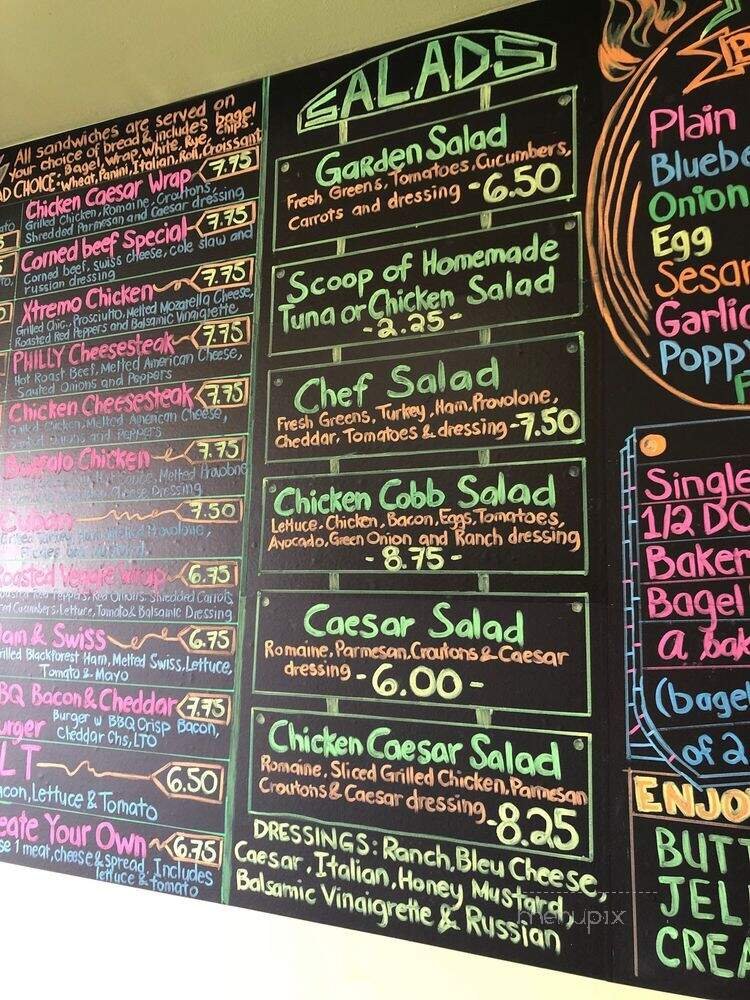 All sandwiches are served on
your choice of bread & includes bagel
chips.
CHOICE: Bagel, Wrap, White, Rye,
Wheat, Panini, Italian, Roll, Croissant
Chicken Caesar Wrap 7.75
Grilled Chicken, Romaine, Croutons,
Shredded Parmesan and Caesar dressing
Corned beef Special 7.75
Corned beef, swiss cheese, cole slaw and
russian dressing
Xtremo Chicken 7.75
Grilled Chic., Prosciutto, Melted Mozarella Cheese,
Roasted Red Peppers and Balsamic Vinaigrette
PHILLY Cheesesteak 7.75
Hot Roast Beef, Melted American Cheese,
Sauted Onions and Peppers
Chicken Cheesesteak 7.75
Grilled Chicken, Melted American Cheese,
Sauted Onions and Peppers
Buffalo Chicken 7.75
Sauce, Melted Provolone
Cheese Dressing
Cuban 7.50
Turkey, Ham, Melted Provolone,
Roasted Veggie Wrap 6.75
Roasted Red Peppers, Red Onions, Shredded Carrots,
Cucumbers, Lettuce, Tomato & Balsamic Dressing
Ham & Swiss 6.75
Grilled Blackforest Ham, Melted Swiss, Lettuce,
Tomato & Mayo
BBQ Bacon & Cheddar 7.75
Burger Burger w BBQ Crisp Bacon,
Cheddar Chs, LTO
LT 6.50
Bacon, Lettuce & Tomato
Create Your Own 6.75
1 meat, cheese & spread. Includes
lettuce & tomato
SALADS
Garden Salad
Fresh Greens, Tomatoes, Cucumbers,
Carrots and dressing - 6.50
Scoop of Homemade
Tuna or Chicken Salad
- 2.25 -
Chef Salad
Fresh Greens, Turkey, Ham, Provolone,
Cheddar, Tomatoes & dressing - 7.50
Chicken Cobb Salad
Lettuce, Chicken, Bacon, Eggs, Tomatoes,
Avocado, Green Onion and Ranch dressing
- 8.75 -
Caesar Salad
Romaine, Parmesan, Croutons & Caesar
dressing - 6.00 -
Chicken Caesar Salad
Romaine, Sliced Grilled Chicken, Parmesan
Croutons & Caesar dressing - 8.25
DRESSINGS: Ranch, Bleu Cheese,
Caesar, Italian, Honey Mustard,
Balsamic Vinaigrette & Russian
Plain
Bluebe
Onion
Egg
Sesam
Garlic
Poppy
Single
1/2 DO
Baker
Bagel
a bak
(bagel
of 2
ENJO
BUTT
JEL
CREA
menupix